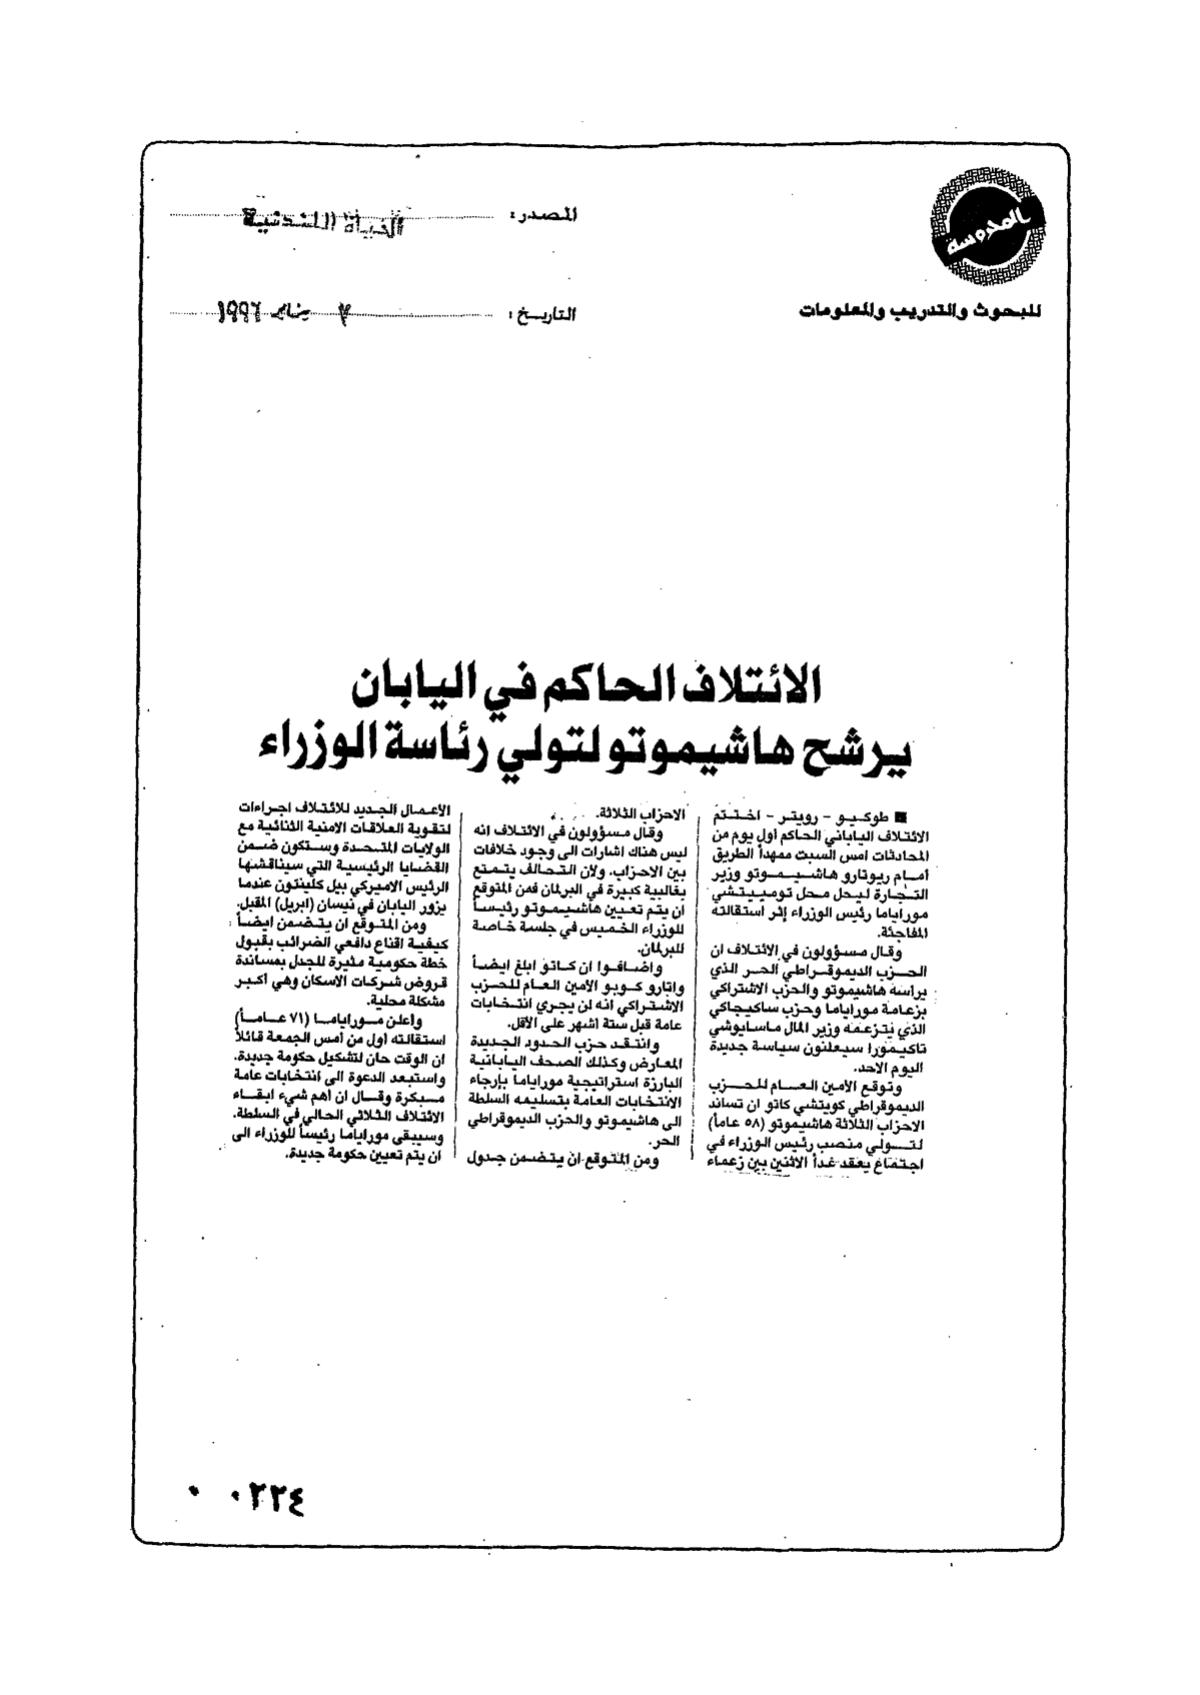 المدروسة
للبحوث والتدريب والمعلومات
المصدر: الحياة اللندنية
التاريخ: ٧ يناير ١٩٩٦
الائتلاف الحاكم في اليابان
يرشح هاشيموتو لتولي رئاسة الوزراء
■ طوكيو – رويتر – اختتم
الائتلاف الياباني الحاكم أول يوم من
المحادثات امس السبت ممهداً الطريق
أمام ريوتارو هاشيموتو وزير
التجارة ليحل محل توميتشي
موراياما رئيس الوزراء إثر استقالته
المفاجئة.
وقال مسؤولون في الائتلاف ان
الحزب الديموقراطي الحر الذي
يراسه هاشيموتو والحزب الاشتراكي
بزعامة موراياما وحزب ساكيجاكي
الذي يتزعمه وزير المال ماسايوشي
تاكيمورا سيعلنون سياسة جديدة
اليوم الاحد.
وتوقع الأمين العام للحزب
الديموقراطي كويتشي كاتو ان تساند
الاحزاب الثلاثة هاشيموتو (٥٨ عاماً)
لتولي منصب رئيس الوزراء في
اجتماع يعقد غداً الاثنين بين زعماء
الاحزاب الثلاثة.
وقال مسؤولون في الائتلاف انه
ليس هناك اشارات الى وجود خلافات
بين الاحزاب. ولأن التحالف يتمتع
بغالبية كبيرة في البرلمان فمن المتوقع
ان يتم تعيين هاشيموتو رئيساً
للوزراء الخميس في جلسة خاصة
للبرلمان.
واضافوا ان كاتو ابلغ ايضاً
واتارو كوبو الأمين العام للحزب
الاشتراكي انه لن يجري انتخابات
عامة قبل ستة اشهر على الأقل.
وانتقد حزب الحدود الجديدة
المعارض وكذلك الصحف اليابانية
البارزة استراتيجية موراياما بإرجاء
الانتخابات العامة بتسليمه السلطة
الى هاشيموتو والحزب الديموقراطي
الحر.
ومن المتوقع ان يتضمن جدول
الأعمال الجديد للائتلاف اجراءات
لتقوية العلاقات الامنية الثنائية مع
الولايات المتحدة وستكون ضمن
القضايا الرئيسية التي سيناقشها
الرئيس الاميركي بيل كلينتون عندما
يزور اليابان في نيسان (ابريل) المقبل.
ومن المتوقع ان يتضمن ايضاً
كيفية اقناع دافعي الضرائب بقبول
خطة حكومية مثيرة للجدل بمساندة
قروض شركات الاسكان وهي أكبر
مشكلة محلية.
واعلن موراياما (٧١ عاماً)
استقالته اول من أمس الجمعة قائلاً
ان الوقت حان لتشكيل حكومة جديدة.
واستبعد الدعوة الى انتخابات عامة
مبكرة وقال ان أهم شيء ابقاء
الائتلاف الثلاثي الحالي في السلطة.
وسيبقى موراياما رئيساً للوزراء الى
ان يتم تعيين حكومة جديدة.
٠٢٢٤ ٠